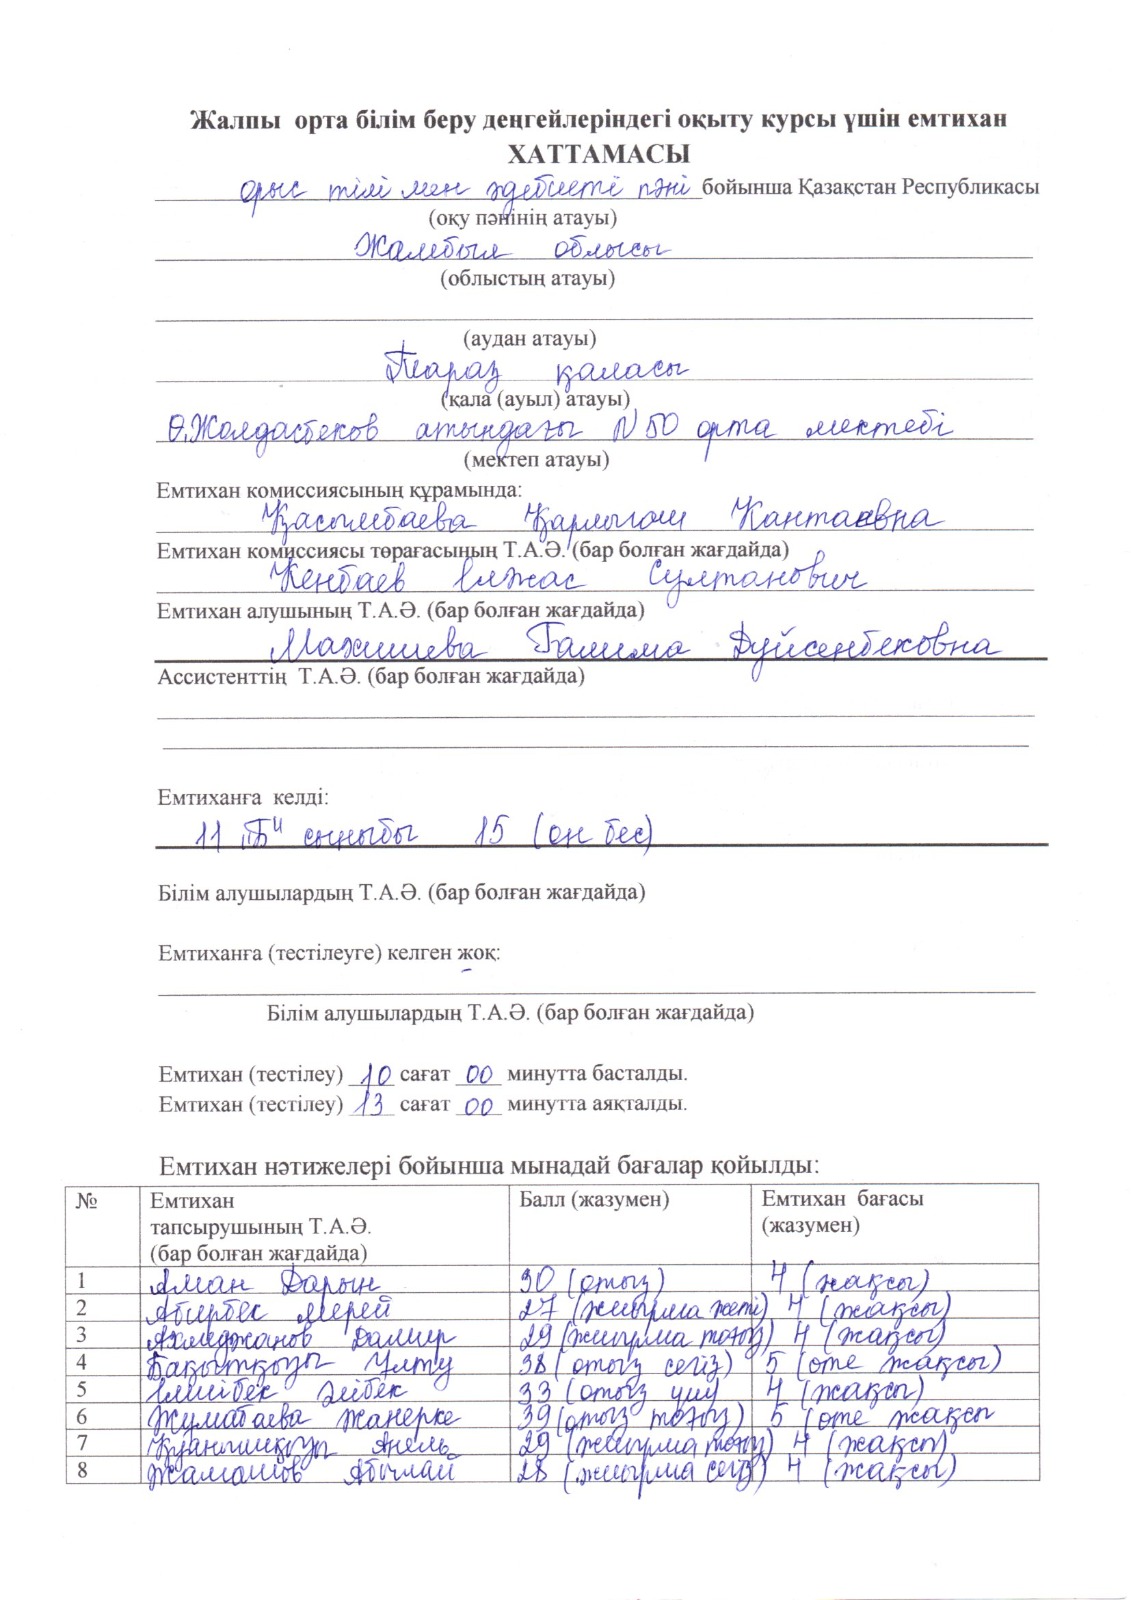 Жалпы орта білім беру деңгейлеріндегі оқыту курсы үшін емтихан
ХАТТАМАСЫ
орыс тілі мен әдебиеті пәні бойынша Қазақстан Республикасы
(оқу пәнінің атауы)
Жамбыл облысы
(облыстың атауы)
(аудан атауы)
Тараз қаласы
(қала (ауыл) атауы)
Ө.Жолдасбеков атындағы N 50 орта мектебі
(мектеп атауы)
Емтихан комиссиясының құрамында:
Қасымбаева Қарлығаш Кантаевна
Емтихан комиссиясы төрағасының Т.А.Ә. (бар болған жағдайда)
Кенбаев Елжас Султанович
Емтихан алушының Т.А.Ә. (бар болған жағдайда)
Махишева Галима Дуйсенбековна
Ассистенттің Т.А.Ә. (бар болған жағдайда)
Емтиханға келді:
11 "Б" сыныбы 15 (он бес)
Білім алушылардың Т.А.Ә. (бар болған жағдайда)
Емтиханға (тестілеуге) келген жоқ:
Білім алушылардың Т.А.Ә. (бар болған жағдайда)
Емтихан (тестілеу) 10 сағат 00 минутта басталды.
Емтихан (тестілеу) 13 сағат 00 минутта аяқталды.
Емтихан нәтижелері бойынша мынадай бағалар қойылды:
№ Емтихан тапсырушының Т.А.Ә. (бар болған жағдайда) Балл (жазумен) Емтихан бағасы (жазумен)
1 Аман Дарын 30 (отыз) 4 (жақсы)
2 Абирбек Мерей 27 (жиырма жеті) 4 (жақсы)
3 Ахмеджанов Дамир 29 (жиырма тоғыз) 4 (жақсы)
4 Бақытқызы Ұлту 38 (отыз сегіз) 5 (өте жақсы)
5 Елшібек Әйбек 33 (отыз үш) 4 (жақсы)
6 Жумабаева Жанерке 39 (отыз тоғыз) 5 (өте жақсы
7 Қуанышқызы Анель 29 (жиырма тоғыз) 4 (жақсы)
8 Жамашов Абылай 28 (жиырма сегіз) 4 (жақсы)